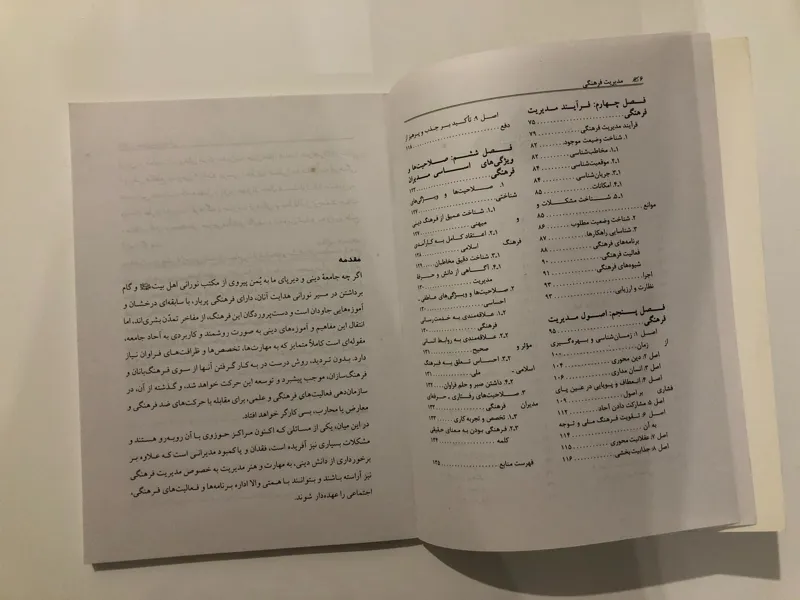 ۶ مدیریت فرهنگی
فصل چهارم: فرآیند مدیریت
فرهنگی ........ ۷۵
فرآیند مدیریت فرهنگی ........ ۷۹
۱. شناخت وضعیت موجود ........ ۸۲
۱.۱. مخاطب‌شناسی ........ ۸۲
۲.۱. موقعیت‌شناسی ........ ۸۴
۳.۱. جریان‌شناسی ........ ۸۴
۴.۱. امکانات ........ ۸۵
۵.۱. شناخت مشکلات و
موانع ........ ۸۵
۲. شناخت وضعیت مطلوب ........ ۸۶
۳. شناسایی راهکارها ........ ۸۷
برنامه‌های فرهنگی ........ ۸۸
فعالیت فرهنگی ........ ۹۰
شیوه‌های فرهنگی ........ ۹۱
اجرا ........ ۹۳
نظارت و ارزیابی ........ ۹۳
فصل پنجم: اصول مدیریت
فرهنگی ........ ۹۵
اصل ۱. زمان‌شناسی و بهره‌گیری
از زمان ........ ۱۰۰
اصل ۲. دین محوری ........ ۱۰۴
اصل ۳. انسان مداری ........ ۱۰۶
اصل ۴. انعطاف و پویایی در عین پای
فشاری بر اصول ........ ۱۰۹
اصل ۵. مشارکت دادن آحاد ........ ۱۱۲
اصل ۶. تقویت فرهنگ ملی و توجه
به آن ........ ۱۱۴
اصل ۷. عقلانیت محوری ........ ۱۱۵
اصل ۸. جذابیت‌بخشی ........ ۱۱۶
اصل ۹. تأکید بر جذب و پرهیز از
دفع ........ ۱۱۸
فصل ششم: صلاحیت‌ها و
ویژگی‌های اساسی مدیران
فرهنگی ........ ۱۲۳
۱. صلاحیت‌ها و ویژگی‌های
شناختی ........ ۱۲۷
۱.۱. شناخت عمیق از فرهنگ دینی
و میهنی
۲.۱. اعتقاد کامل به کارآمدی
فرهنگ اسلامی
۳.۱. شناخت دقیق مخاطبان
۴.۱. آگاهی از دانش و حرفهٔ
مدیریت
۲. صلاحیت‌ها و ویژگی‌های عاطفی ـ
احساسی
۱.۲. علاقه‌مندی به خدمت‌رسانی
فرهنگی ........ ۱۳۰
۲.۲. علاقه‌مندی به روابط انسانی
مؤثر و صحیح ........ ۱۳۱
۳.۲. احساس تعلق به فرهنگ
اسلامی - ملی ........ ۱۳۱
۴.۲. داشتن صبر و حلم فراوان ........ ۱۳۲
۳. صلاحیت‌های رفتاری ـ حرفه‌ای
مدیران فرهنگی ........ ۱۳۳
۱.۳. تخصص و تجربه کاری
۲.۳. فرهنگی بودن به معنای حقیقی
کلمه ........ ۱۳۴
فهرست منابع ........ ۱۳۵
مقدمه
اگر چه جامعهٔ دینی و دیرپای ما به یُمن پیروی از مکتب نورانی اهل بیت و گام
برداشتن در مسیر نورانی هدایت آنان، دارای فرهنگی پربار، با سابقه‌ای درخشان و
آموزه‌هایی جاودان است و دست‌پروردگان این فرهنگ، از مفاخر تمدّن بشری‌اند، اما
انتقال این مفاهیم و آموزه‌های دینی به صورت روشمند و کاربردی به آحاد جامعه،
مقوله‌ای است کاملاً متمایز که به مهارت‌ها، تخصص‌ها و ظرافت‌های فراوان نیاز
دارد. بدون تردید، روش درست در به کار گرفتن آنها از سوی فرهنگ‌بانان و
فرهنگ‌سازان، موجب پیشبرد و توسعه این حرکت خواهد شد، و گذشته از آن، در
سازمان‌دهی فعالیت‌های فرهنگی و علمی، برای مقابله با حرکت‌های ضد فرهنگی و
معارض یا محارب، بسی کارگر خواهد افتاد.
در این میان، یکی از مسائلی که اکنون مراکز حوزوی با آن روبه‌رو هستند و
مشکلات بسیاری نیز آفریده است، فقدان و یا کمبود مدیرانی است که علاوه بر
برخورداری از دانش دینی، به مهارت و هنر مدیریت به خصوص مدیریت فرهنگی
نیز آراسته باشند و بتوانند با همتی والا اداره برنامه‌ها و فعالیت‌های فرهنگی،
اجتماعی را عهده‌دار شوند.